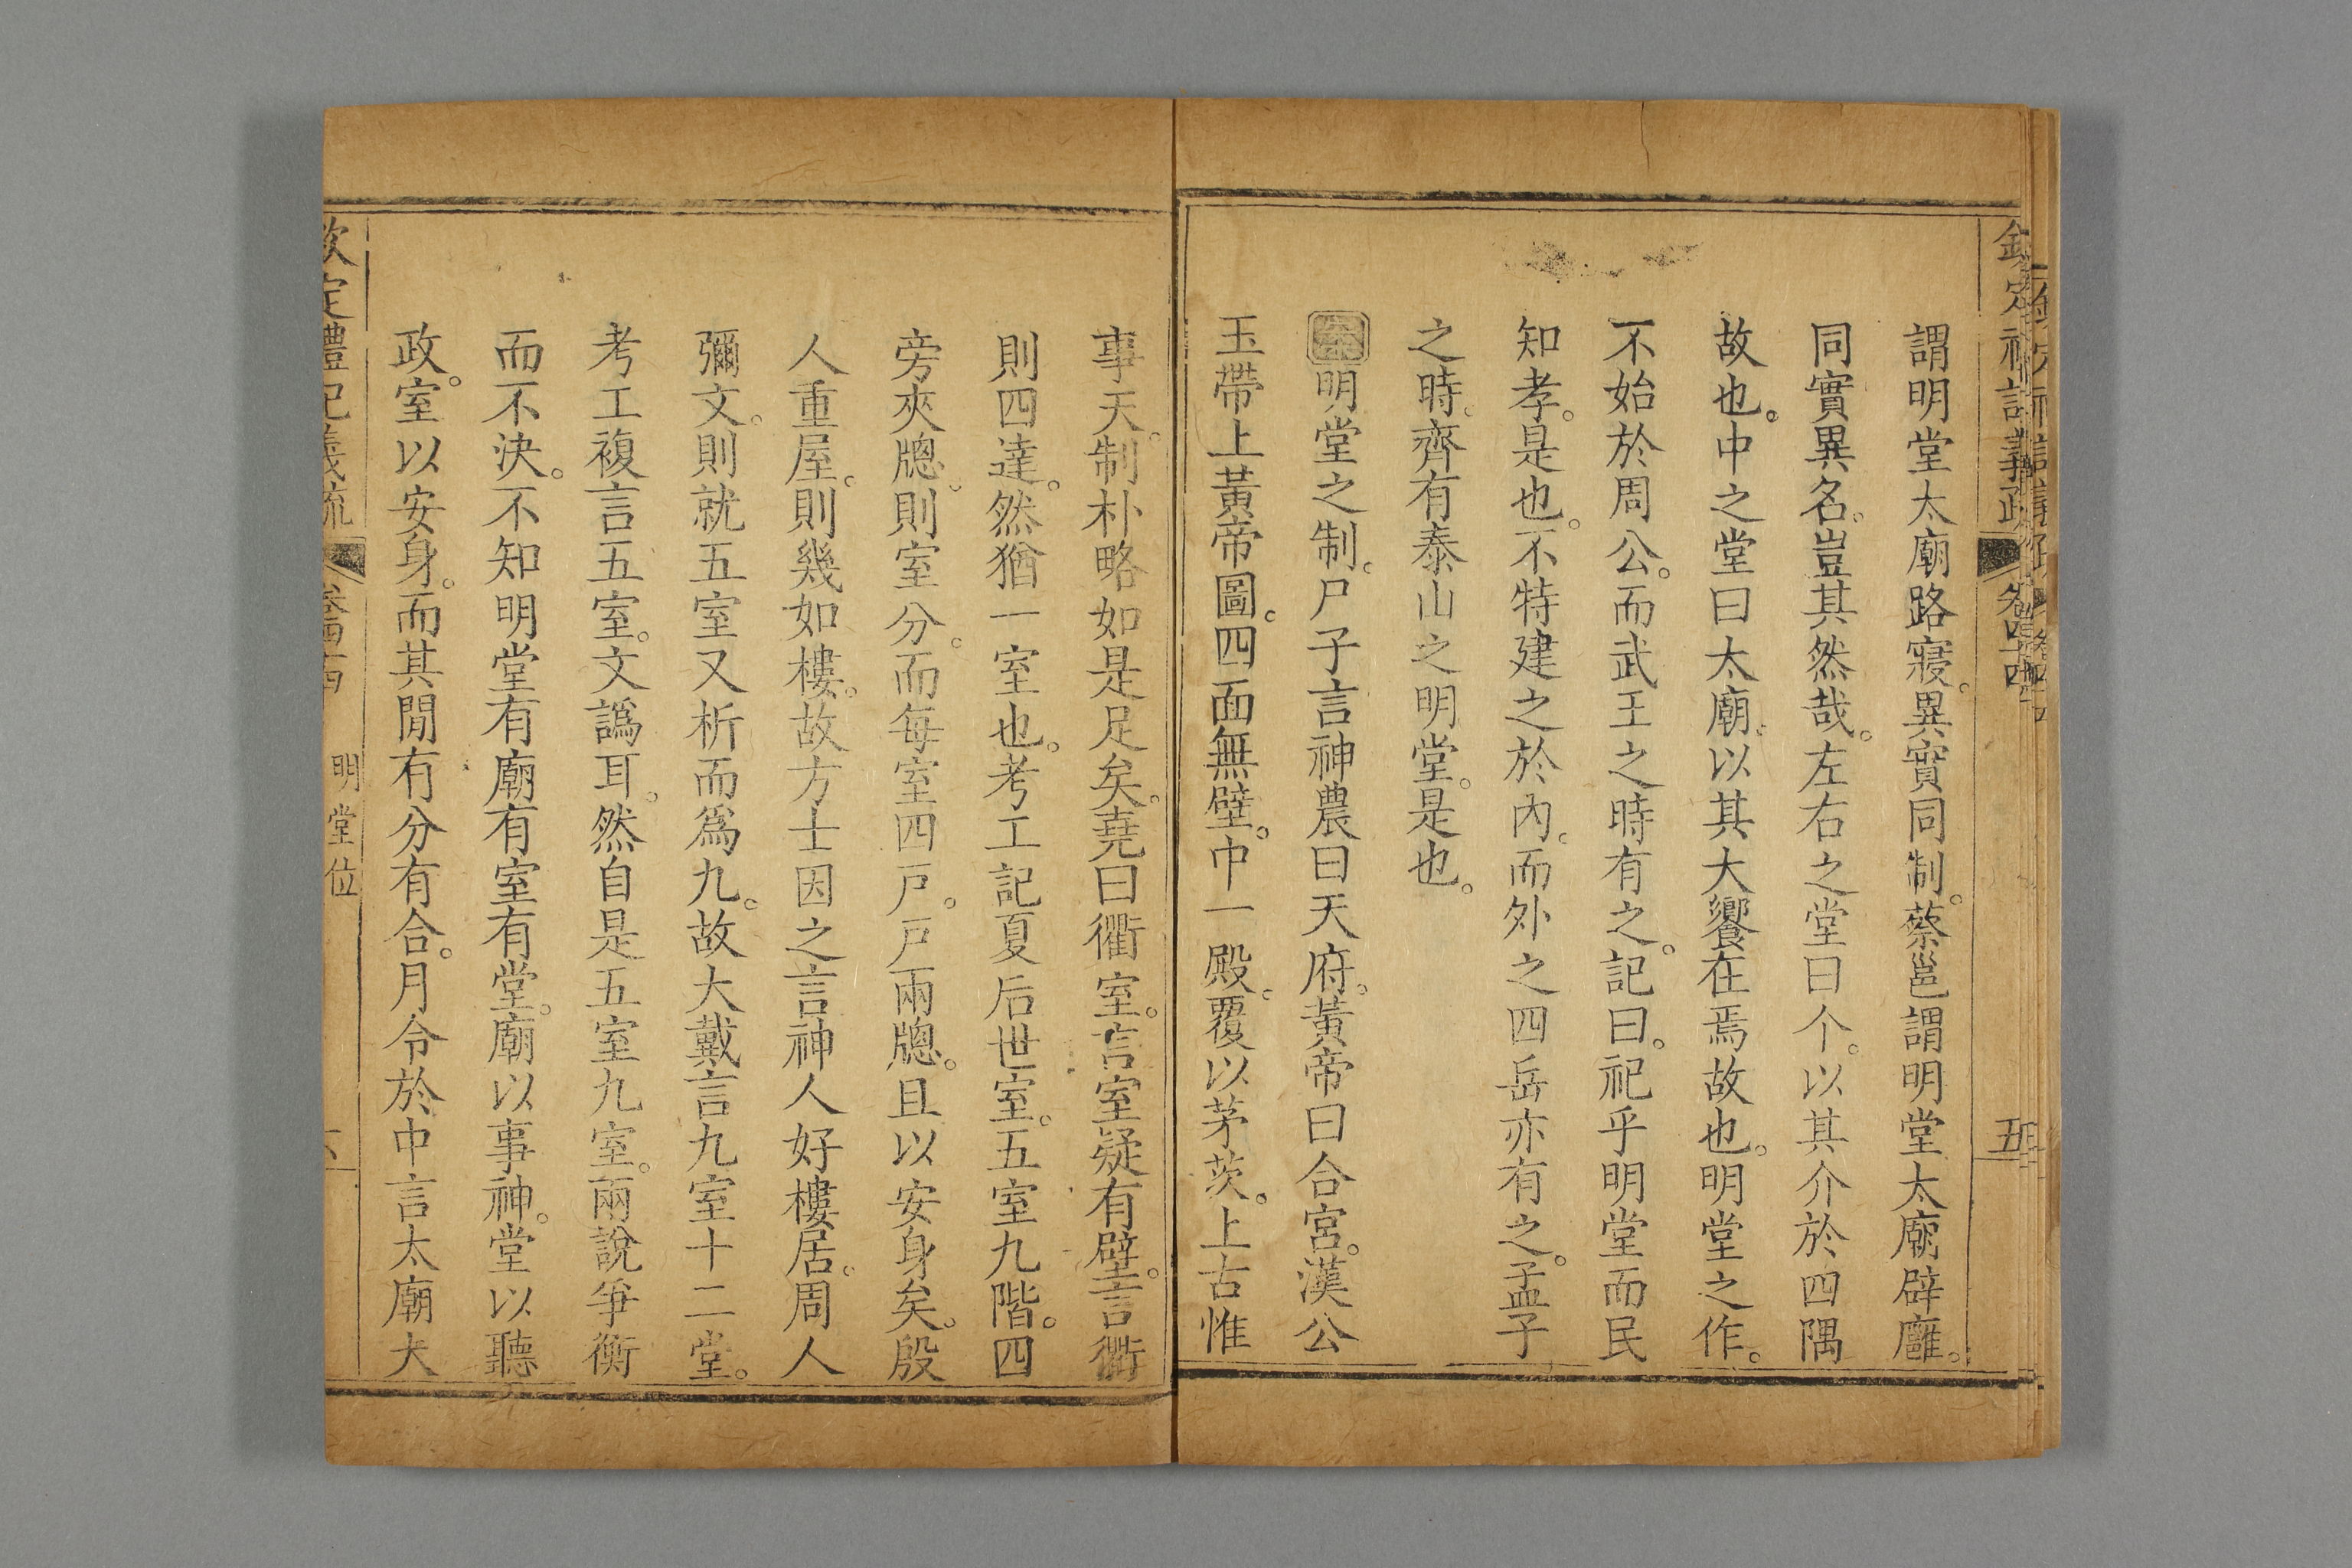 謂明堂太廟路寢。異實同制。蔡邕謂明堂太廟辟廱。
同實異名。豈其然哉。左右之堂曰个。以其介於四隅
故也。中之堂曰太廟。以其大饗在焉故也。明堂之作。
不始於周公。而武王之時有之。記曰。祀乎明堂而民
知孝。是也。不特建之於內。而外之四岳亦有之。孟子
之時。齊有泰山之明堂。是也。
案明堂之制。尸子言神農曰天府。黃帝曰合宮。漢公
玉帶上黃帝圖。四面無壁。中一殿。覆以茅茨。上古惟
事天。制朴略如是足矣。堯曰衢室。言室疑有壁。言衢
則四達。然猶一室也。考工記夏后世室。五室九階。四
旁夾牕。則室分。而每室四戶。戶兩牕。且以安身矣。殷
人重屋。則幾如樓。故方士因之言神人好樓居。周人
彌文。則就五室又析而爲九。故大戴言九室十二堂。
考工複言五室。文譌耳。然自是五室九室。兩說爭衡
而不決。不知明堂有廟有室有堂。廟以事神。堂以聽
政。室以安身。而其閒有分有合。月令於中言太廟大
欽定禮記義疏
明堂位
五